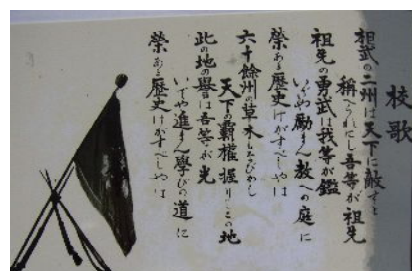 校歌
相武の二州は天下に敵すと
稱へられにし吾等が祖先
祖先の勇武は我等が鑑
いでや勵まん教への庭に
榮ある歴史けがすべしやは
六十餘州の草木もなびかし
天下の覇權握りしこの地
此の地の譽は吾等が光
いでや進まん學びの道に
榮ある歴史けがすべしやは